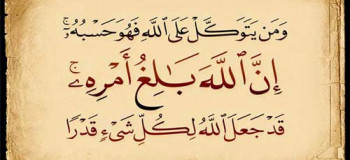 وَمَن يَتَوَكَّلْ عَلَى ٱللَّهِ فَهُوَ حَسْبُهُۥٓ ۚ
إِنَّ ٱللَّهَ بَٰلِغُ أَمْرِهِۦ ۚ
قَدْ جَعَلَ ٱللَّهُ لِكُلِّ شَىْءٍ قَدْرًا